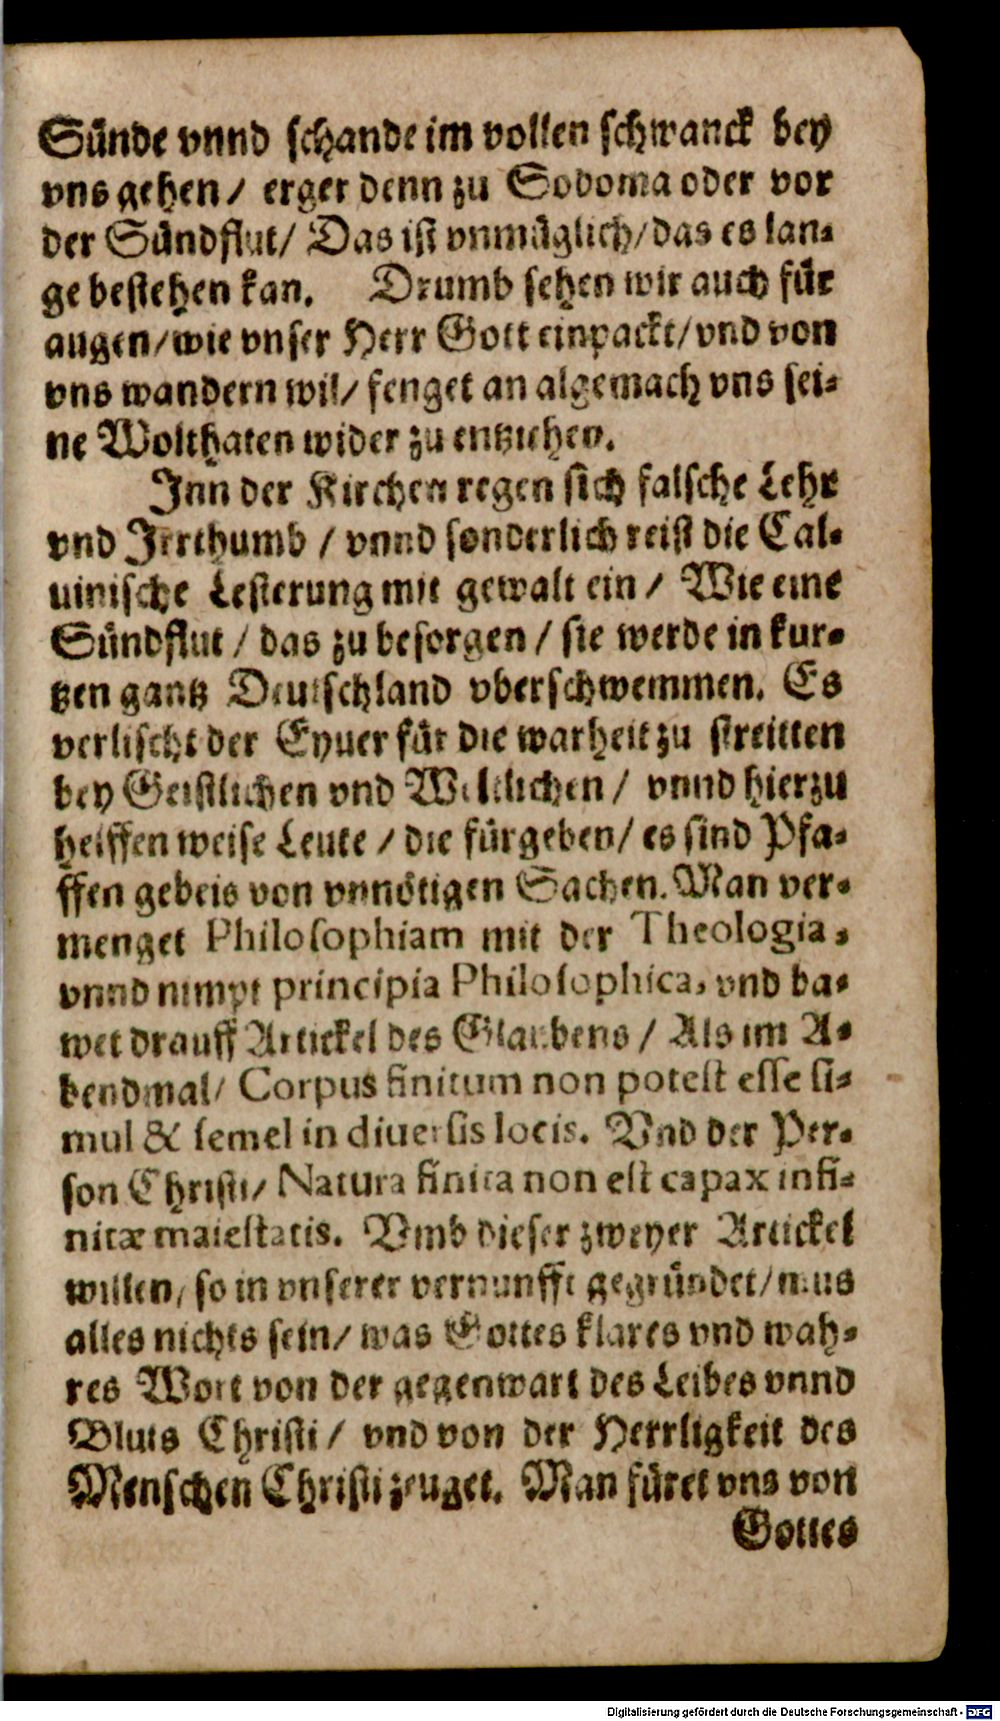 Sünde vnnd schande im vollen schwanck bey
vns gehen/ erger denn zu Sodoma oder vor
der Sündflut/ Das ist vnmüglich/ das es lan-
ge bestehen kan. Drumb sehen wir auch für
augen/ wie vnser Herr Gott einpackt/ vnd von
vns wandern wil/ fenget an algemach vns sei-
ne Wolthaten wider zu entziehen.
Inn der Kirchen regen sich falsche Lehr
vnd Irrthumb / vnnd sonderlich reist die Cal-
uinische Lesterung mit gewalt ein / Wie eine
Sündflut / das zu besorgen / sie werde in kur-
tzen gantz Deutschland vberschwemmen. Es
verlischt der Eyuer für die warheit zu streitten
bey Geistlichen vnd Weltlichen / vnnd hierzu
helffen weise Leute / die fürgeben/ es sind Pfa-
ffen gebeis von vnnötigen Sachen. Man ver-
menget Philosophiam mit der Theologia,
vnnd nimpt principia Philosophica, vnd ba-
wet drauff Artickel des Glaubens / Als im A-
bendmal/ Corpus finitum non potest esse si-
mul & semel in diuersis locis. Vnd der Per-
son Christi/ Natura finita non est capax infi-
nitæ maiestatis. Vmb dieser zweyer Artickel
willen, so in vnserer vernunfft gegründet/ mus
alles nichts sein/ was Gottes klares vnd wah-
res Wort von der gegenwart des Leibes vnnd
Bluts Christi / vnd von der Herrligkeit des
Menschen Christi zeuget. Man füret vns von
Gottes
Digitalisierung gefördert durch die Deutsche Forschungsgemeinschaft - DFG